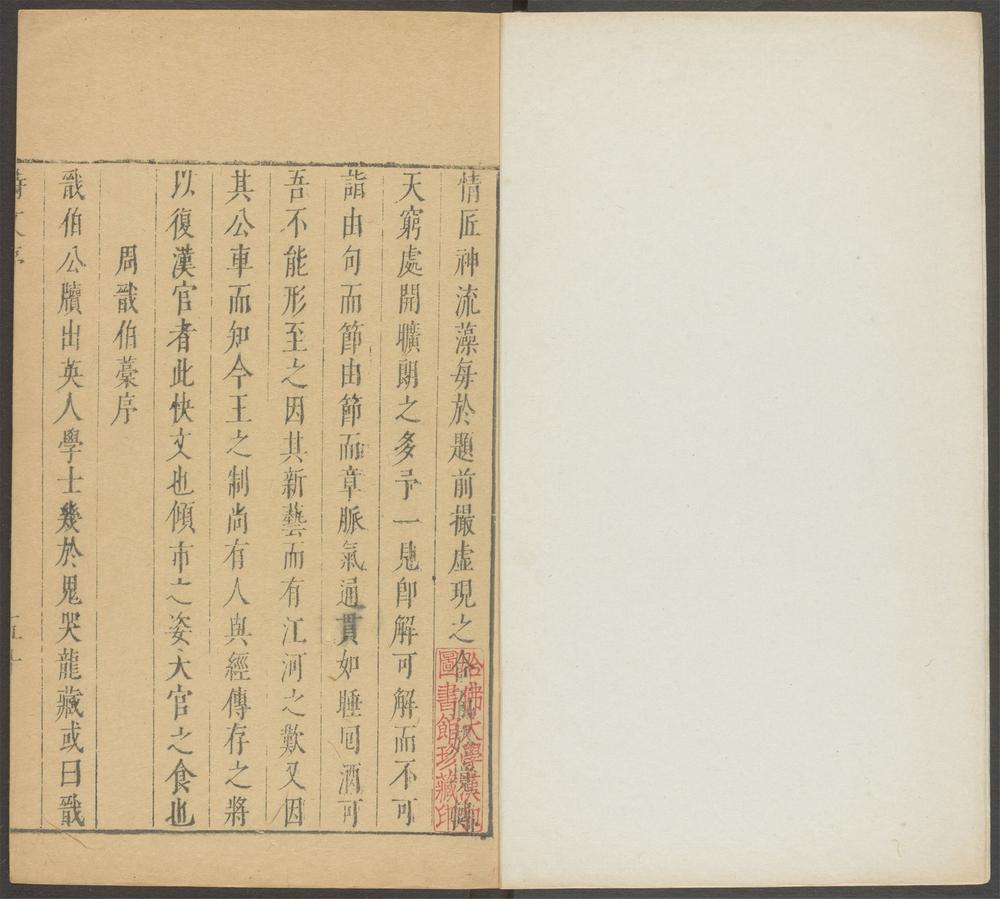 情匠神流藻每於題前撮虛現之
天窮處開曠朗之多予一見卽解可解而不可
詣由句而節由節而章脈氣通貫如睡回酒可
吾不能形至之因其新藝而有江河之歎又因
其公車而知今王之制尚有人與經傳存之將
以復漢官者此快文也傾市之姿大官之食也
周戩伯藁序
戩伯公牘出英人學士幾於鬼哭龍藏或曰戩
哈佛大學漢和
圖書館珍藏印